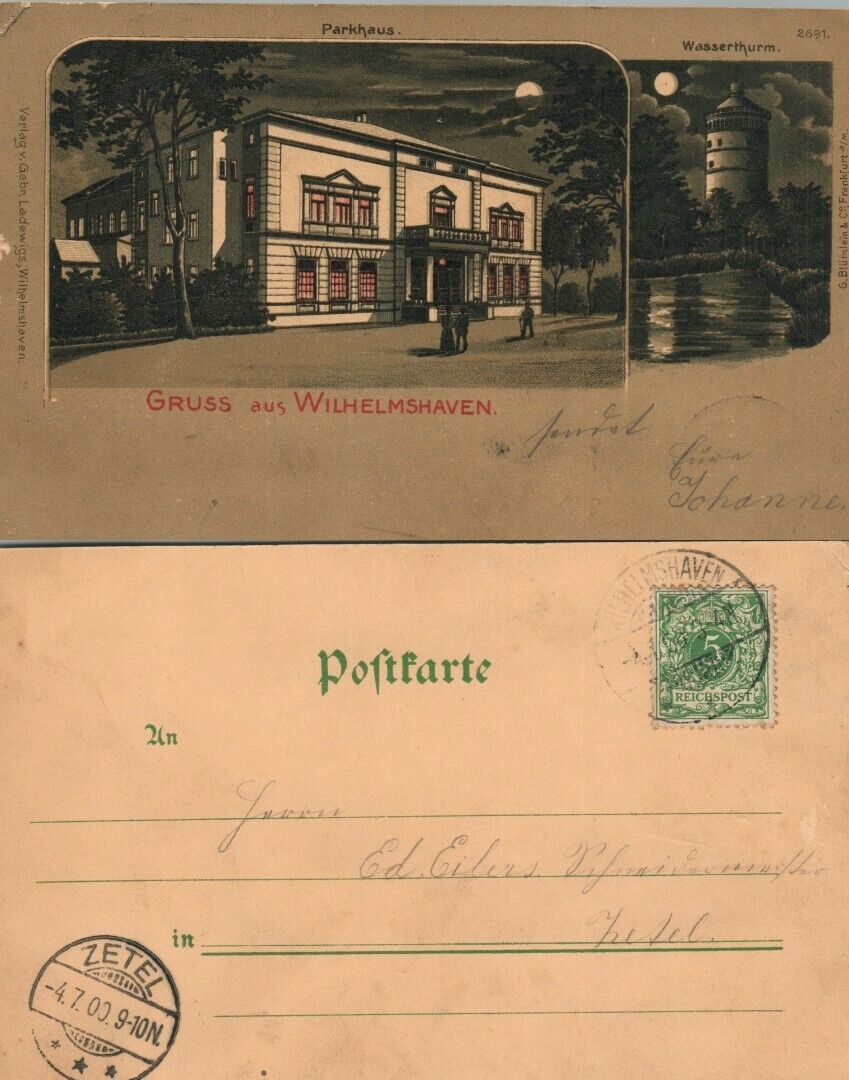 Parkhaus.
2691.
Wasserthurm.
Verlag v. Gebr. Ladewigs, Wilhelmshaven.
G. Blümlein & Co. Frankfurt a/M.
GRUSS aus WILHELMSHAVEN.
sendet
Eure
Johanne.
WILHELMSHAVEN
Postkarte
5
REICHSPOST
An
Herrn
Ed. Eilers. Schneidermeister
in Zetel.
ZETEL
-4.7.00. 9-10N.